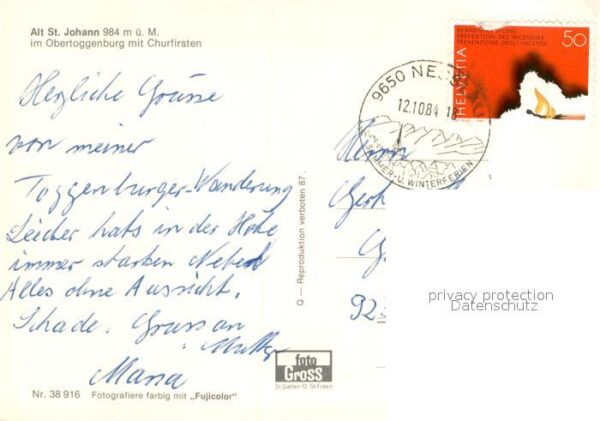 Alt St. Johann 984 m ü. M.
im Obertoggenburg mit Churfirsten
Herzliche Grüsse
von meiner
Toggenburger-Wanderung
Leider hats in der Höhe
immer starken Nebel
Alles ohne Aussicht.
Schade. Gruss an
Mutter
Maria
Nr. 38 916 Fotografiere farbig mit „Fujicolor"
O — Reproduktion verboten 87.
foto
Gross
St. Gallen O St. Fiden
9650 NE
12.10.84
SOMMER- U. WINTERFERIEN
BRANDVERHÜTUNG
PREVENTION DES INCENDIES
PREVENZIONE DEGLI INCENDI
50
HELVETIA
Herrn
Gerh
G
92
privacy protection
Datenschutz